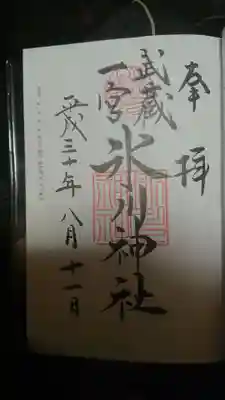 奉拝
武蔵
一宮
氷川神社
平成三十年八月十一日